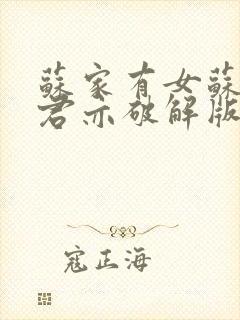 蘇家有女蘇
君亦破解版
寇正海